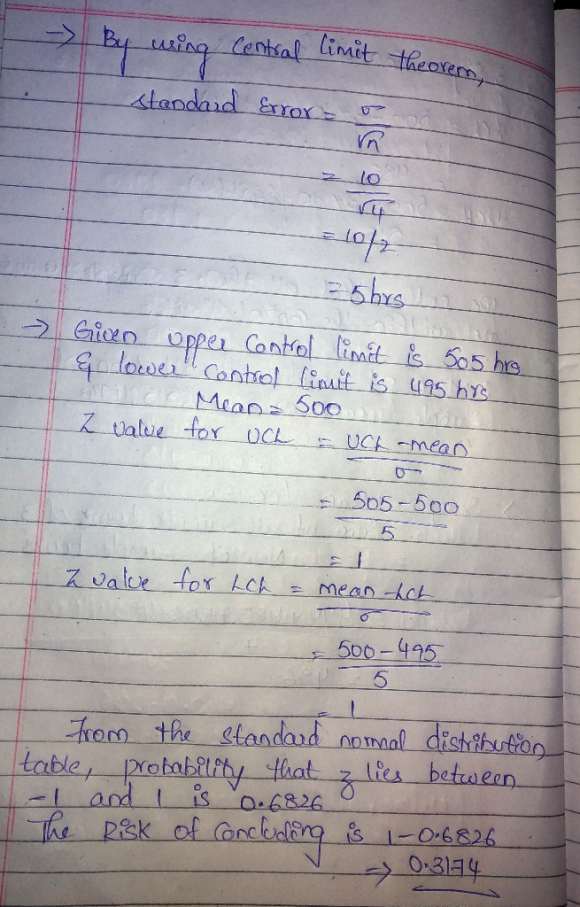 → By using Central limit theorem,
standard Error = σ/√n
= 10/√4
= 10/2
= 5hrs
→ Given upper Control limit is 505 hrs
& lower control limit is 495 hrs
Mean = 500
Z value for UCL = UCL - mean/σ
= 505 - 500/5
= 1
Z value for LCL = mean - LCL/σ
= 500 - 495/5
= 1
From the standard normal distribution
table, probability that z lies between
-1 and 1 is 0.6826
The Risk of Concluding is 1-0.6826
⇒ 0.3174